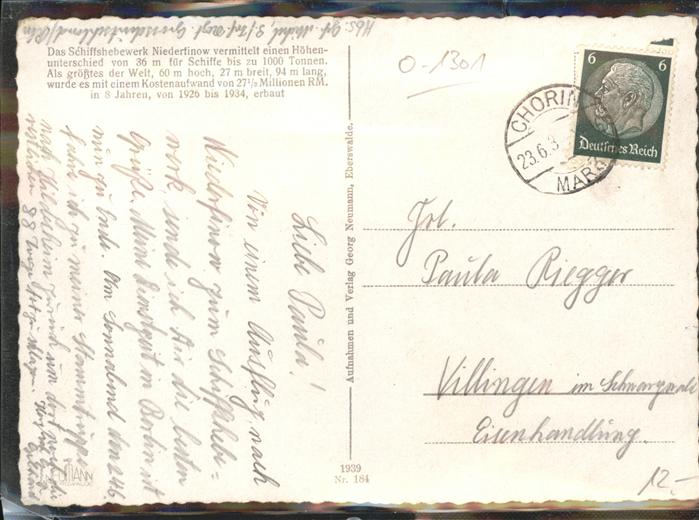 Das Schiffshebewerk Niederfinow vermittelt einen Höhen-
unterschied von 36 m für Schiffe bis zu 1000 Tonnen.
Als größtes der Welt, 60 m hoch, 27 m breit, 94 m lang,
wurde es mit einem Kostenaufwand von 27½ Millionen RM.
in 8 Jahren, von 1926 bis 1934, erbaut
O-1301
6 6
Deutsches Reich
CHORIN
23.6.3
MARK
Liebe Paula!
Von einem Ausflug nach
Niederfinow zum Schiffshebe-
werk, sende ich Dir die besten
Grüße. Meine Dienstzeit in Berlin ist
nun zu Ende. Am Sonnabend den 24.6.
fahre ich zu meiner Stammtruppe
nach Hildesheim zurück
Aufnahmen und Verlag Georg Neumann, Eberswalde.
Frl.
Paula Riegger
Villingen im Schwarzwald
Eisenhandlung.
1939
Nr. 184
12.-